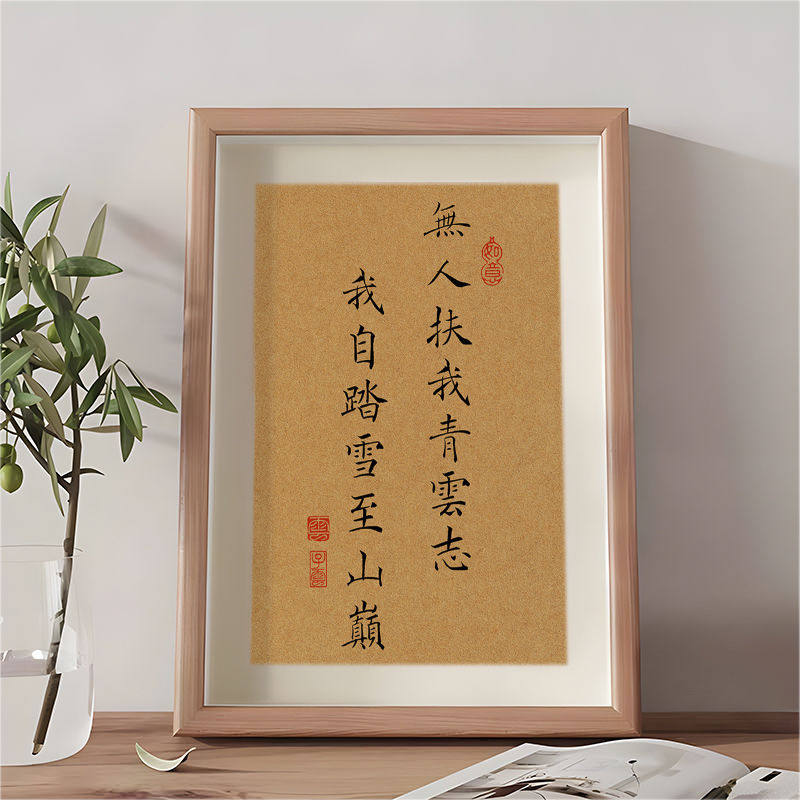 無人扶我青雲志
我自踏雪至山巔
如意